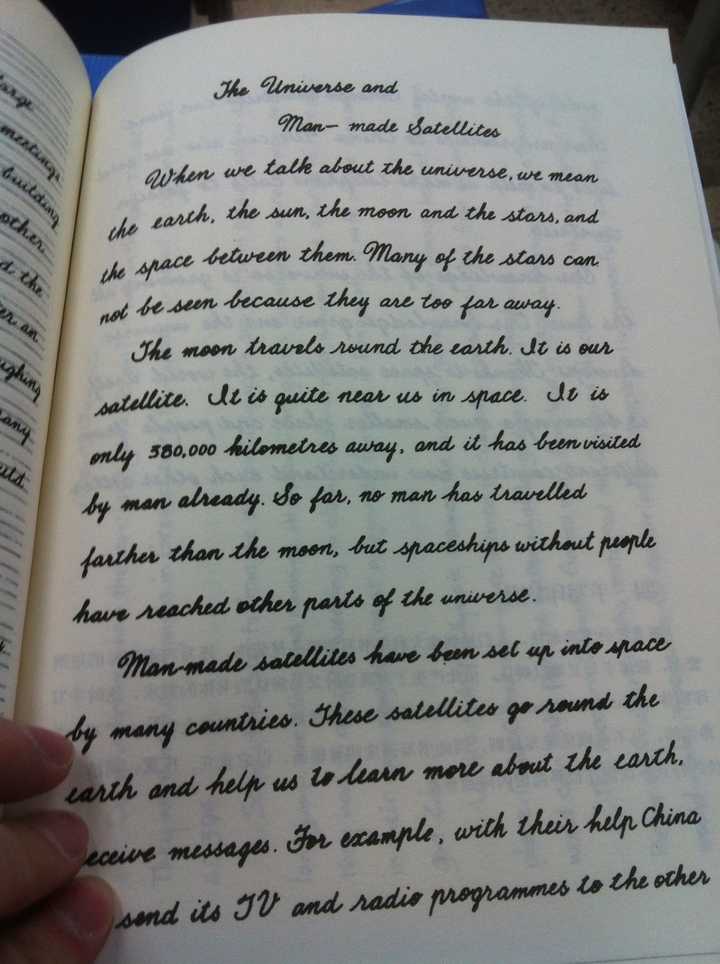 The Universe and
Man- made Satellites
When we talk about the universe, we mean
the earth, the sun, the moon and the stars, and
the space between them. Many of the stars can
not be seen because they are too far away.
The moon travels round the earth. It is our
satellite. It is quite near us in space. It is
only 380,000 kilometres away, and it has been visited
by man already. So far, no man has travelled
farther than the moon, but spaceships without people
have reached other parts of the universe.
Man-made satellites have been set up into space
by many countries. These satellites go round the
earth and help us to learn more about the earth,
eceive messages. For example, with their help China
send its TV and radio programmes to the other
large
meetings
building
other
the
an
ughing
any